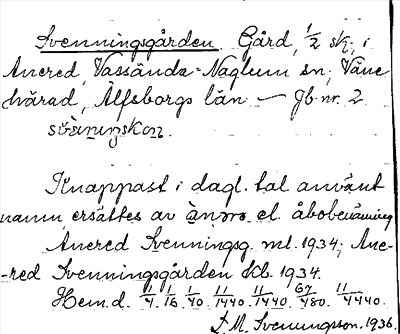 Svenningsgården. Gård, 1/2 sk; i
Anered, Vassända-Naglum sn; Väne
härad, Älfsborgs län — Jb. nr. 2
Knappast i dagl. tal använt
namn, ersättes av el. åbobenämning
Anered Svenningsg. ml. 1934; Ane-
-red Svenningsgården kb. 1934.
Hem.d. 1/4. 1/16. 1/40. 11/1440. 11/1440. 67/480. 11/4440.
D. M. Svenungsson. 1936